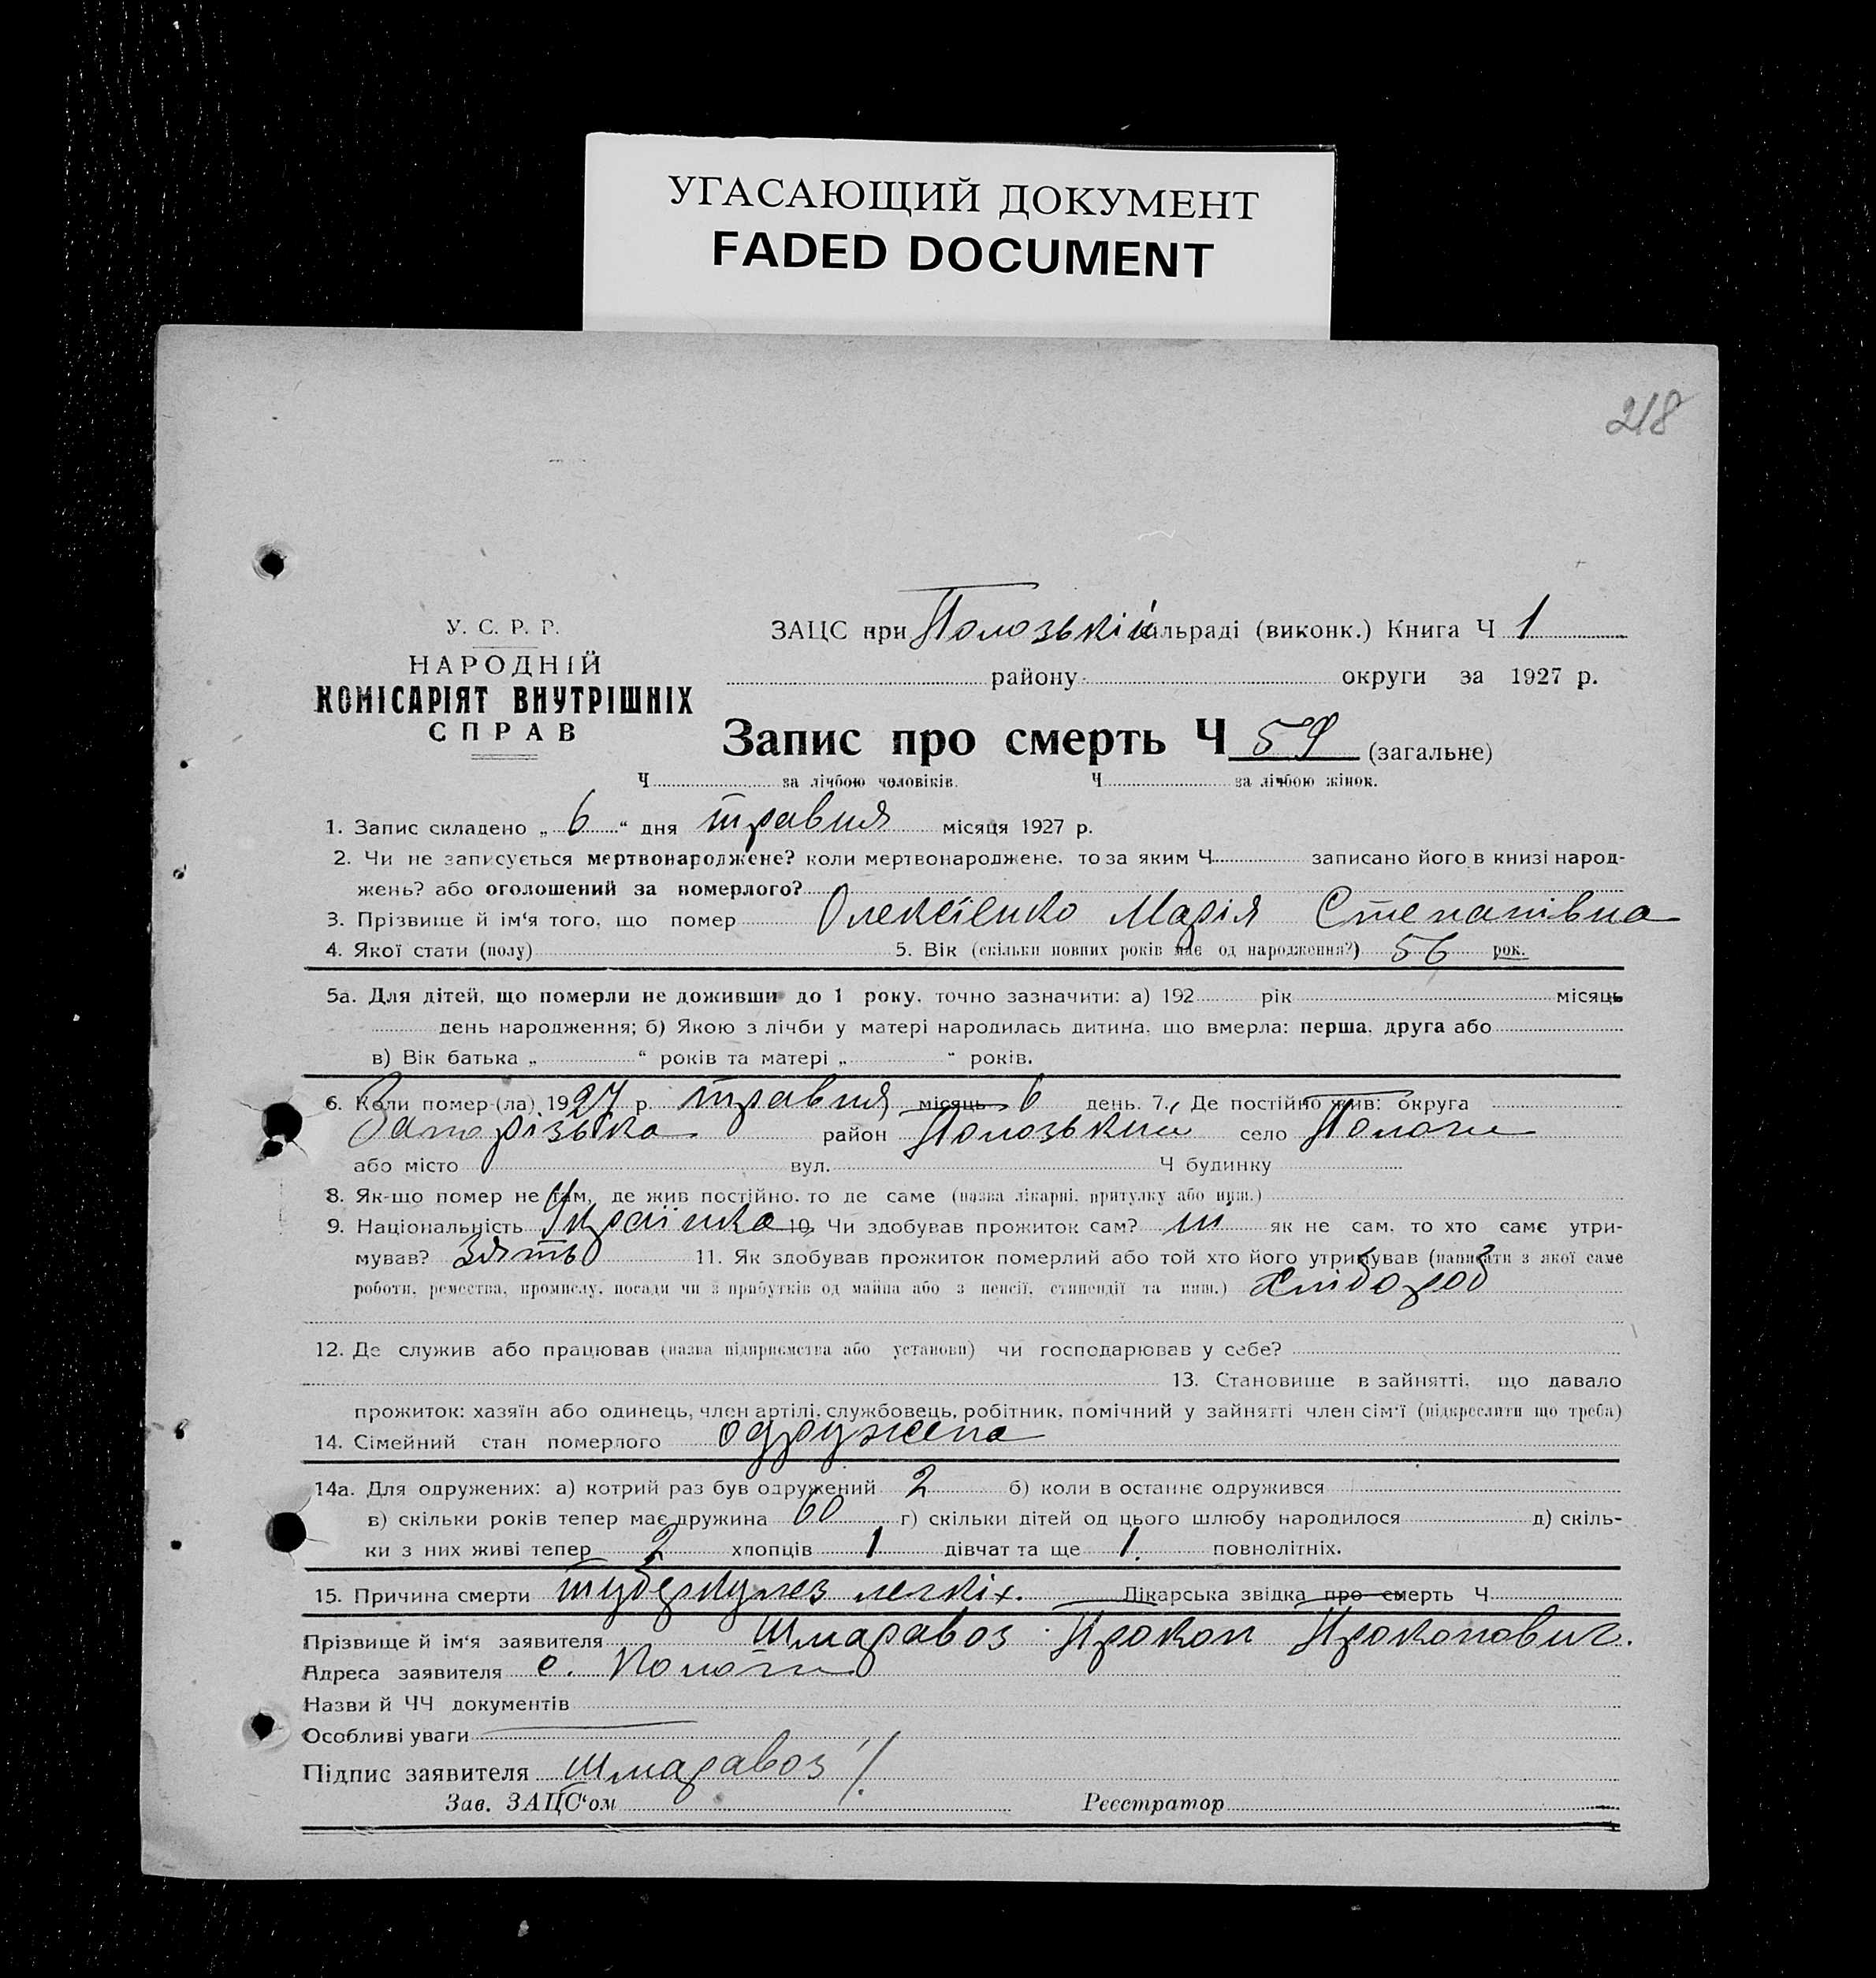 УГАСАЮЩИЙ ДОКУМЕНТ
FADED DOCUMENT
218
У. С. Р. Р.
НАРОДНІЙ
КОМІСАРІЯТ ВНУТРІШНІХ
СПРАВ
ЗАЦС при Полозькій сільраді (виконк.) Книга Ч 1
району округи за 1927 р.
Запис про смерть Ч 59 (загальне)
Ч за лічбою чоловіків. Ч за лічбою жінок.
1. Запис складено „ 6 “ дня травня місяця 1927 р.
2. Чи не записується мертвонароджене? коли мертвонароджене, то за яким Ч записано його в книзі народ-
жень? або оголошений за померлого?
3. Прізвище й ім'я того, що помер Олексієнко Марія Степанівна
4. Якої стати (полу) 5. Вік (скільки повних років має од народження?) 56 рок.
5а. Для дітей, що померли не доживши до 1 року, точно зазначити: а) 192 рік місяць
день народження; б) Якою з лічби у матері народилась дитина, що вмерла: перша, друга або
в) Вік батька „ “ років та матері „ “ років.
6. Коли помер (ла) 1927 р. травня місяць 6 день. 7. Де постійно жив: округа
Запорізька район Полозький село Пологи
або місто вул. Ч будинку
8. Як-що помер не там, де жив постійно, то де саме (назва лікарні, притулку або инш.)
9. Національність Українка 10. Чи здобував прожиток сам? ні як не сам, то хто саме утри-
мував? Зять 11. Як здобував прожиток померлий або той хто його утримував (написати з якої саме
роботи, ремества, промислу, посади чи з прибутків од майна або з пенсії, стипендії та инш.) хлібороб
12. Де служив або працював (назва підприємства або установи) чи господарював у себе?
13. Становище в зайнятті, що давало
прожиток: хазяїн або одинець, член артілі, службовець, робітник, помічний у зайнятті член сім'ї (підкреслити що треба)
14. Сімейний стан померлого одружена
14а. Для одружених: а) котрий раз був одружений 2 б) коли в останнє одружився
в) скільки років тепер має дружина 60 г) скільки дітей од цього шлюбу народилося д) скіль-
ки з них живі тепер 2 хлопців 1 дівчат та ще 1. повнолітніх.
15. Причина смерти туберкульоз легкіх. Лікарська звідка про смерть Ч
Прізвище й ім'я заявителя Шмаравоз Прокоп Прокопович.
Адреса заявителя с. Пологи
Назви й ЧЧ документів
Особливі уваги
Підпис заявителя Шмаравоз
Зав. ЗАЦС'ом Реєстратор